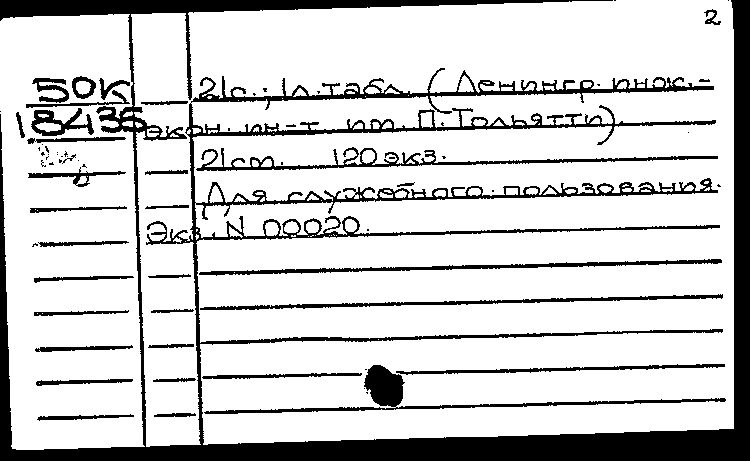 2
50К
18435
21с.; 1л.табл. (Ленингр. инж.-
экон. ин-т им. П. Тольятти).
21см. 120 экз.
Для служебного пользования.
Экз. N 00020.